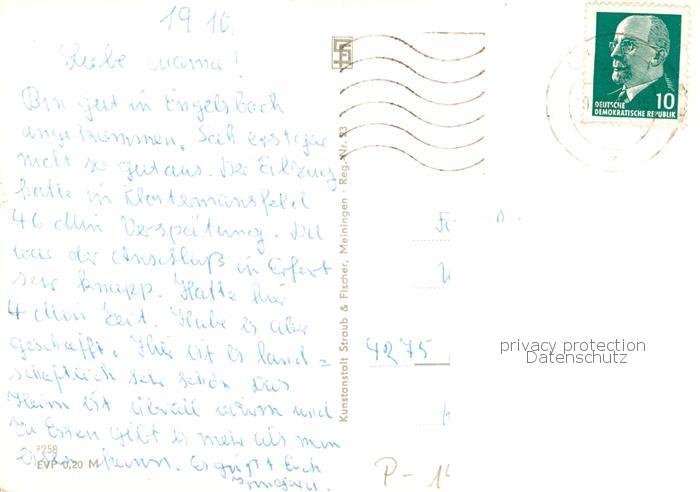 19 10.
Liebe Mama!
Bin gut in Engelsbach
angekommen. Sah erst gar
nicht so gut aus. Der Eilzug
hatte in Klostermansfeld
46 Min Verspätung. Da
war der Anschluß in Erfurt
sehr knapp. Hatte hier
4 Min Zeit. Habe es aber
geschafft. Hier ist es land=
schaftlich sehr schön Das
Heim ist überall warm und
Zu Essen gibt es mehr als man
essen kann. Es grüßt Euch
7258
EVP 0,20 M
Kunstanstalt Straub & Fischer, Meiningen · Reg.-Nr. 23
DEUTSCHE
DEMOKRATISCHE REPUBLIK
10
4275
privacy protection
Datenschutz
P-